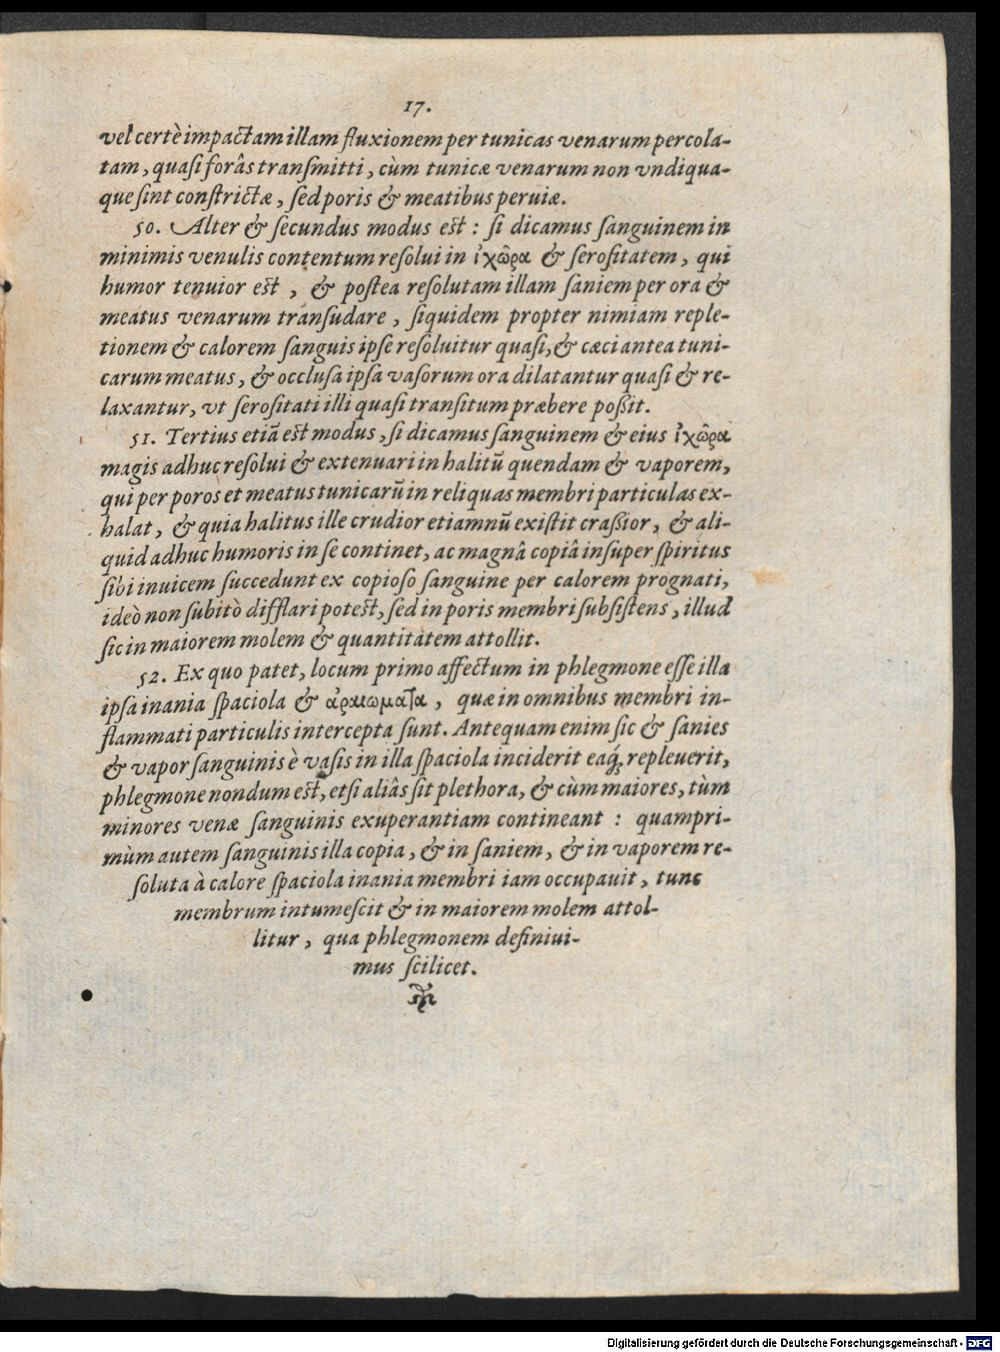 17.
vel certè impactam illam fluxionem per tunicas venarum percola-
tam, quaſi forâs tranſmitti, cùm tunicæ venarum non vndiqua-
que ſint conſtrictæ, ſed poris & meatibus peruiæ.
50. Alter & ſecundus modus est : ſi dicamus ſanguinem in
minimis venulis contentum reſolui in ἰχῶρα & ſeroſitatem, qui
humor tenuior est, & poſtea reſolutam illam ſaniem per ora &
meatus venarum tranſudare, ſiquidem propter nimiam reple-
tionem & calorem ſanguis ipſe reſoluitur quaſi, & cæci antea tuni-
carum meatus, & occluſa ipſa vaſorum ora dilatantur quaſi & re-
laxantur, vt ſeroſitati illi quaſi tranſitum præbere poßit.
51. Tertius etiã est modus, ſi dicamus ſanguinem & eius ἰχῶρα
magis adhuc reſolui & extenuari in halitũ quendam & vaporem,
qui per poros et meatus tunicarũ in reliquas membri particulas ex-
halat, & quia halitus ille crudior etiamnũ exiſtit craßior, & ali-
quid adhuc humoris in ſe continet, ac magnâ copiâ inſuper ſpiritus
ſibi inuicem ſuccedunt ex copioſo ſanguine per calorem prognati,
ideò non ſubitò difflari potest, ſed in poris membri ſubſiſtens, illud
ſic in maiorem molem & quantitatem attollit.
52. Ex quo patet, locum primo affectum in phlegmone eſſe illa
ipſa inania ſpaciola & ἀραιωματα, quæ in omnibus membri in-
flammati particulis intercepta ſunt. Antequam enim ſic & ſanies
& vapor ſanguinis è vaſis in illa ſpaciola inciderit eaq́; repleuerit,
phlegmone nondum est, etſi aliâs ſit plethora, & cùm maiores, tùm
minores venæ ſanguinis exuperantiam contineant : quampri-
mùm autem ſanguinis illa copia, & in ſaniem, & in vaporem re-
ſoluta à calore ſpaciola inania membri iam occupauit, tunc
membrum intumeſcit & in maiorem molem attol-
litur, qua phlegmonem definiui-
mus ſcilicet.
Digitalisierung gefördert durch die Deutsche Forschungsgemeinschaft - DFG